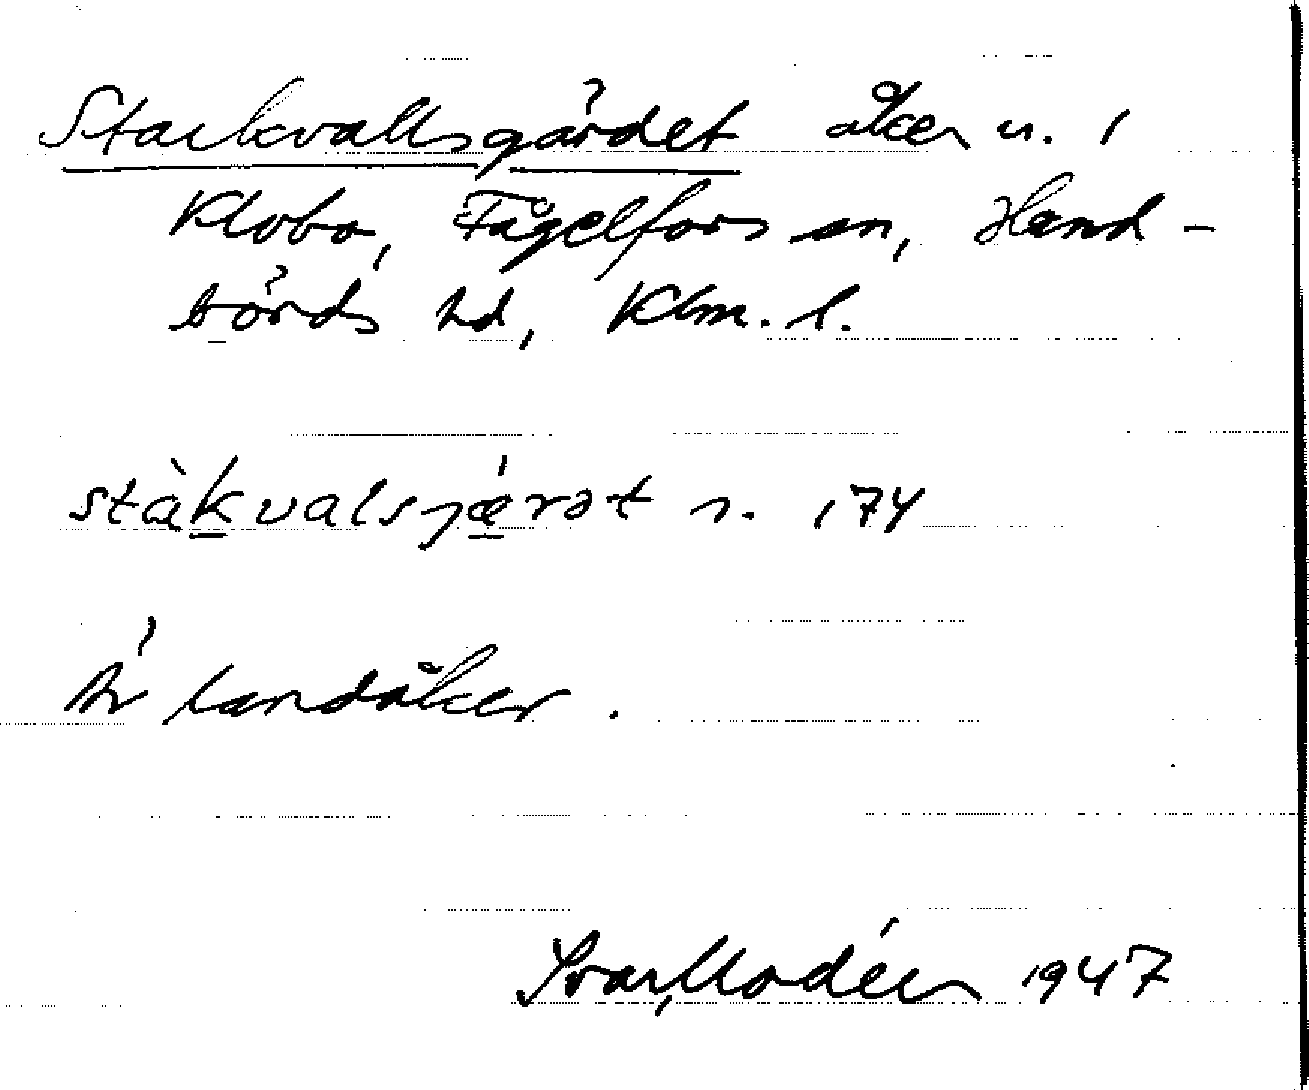 Starkvallsgärdet åker n. 1
Klobo, Fågelfors sn, Hand-
börds hd, Klm. l.
stàkvalsjǽrət s. 174
Är landåker.
Ivar Modéer 1947